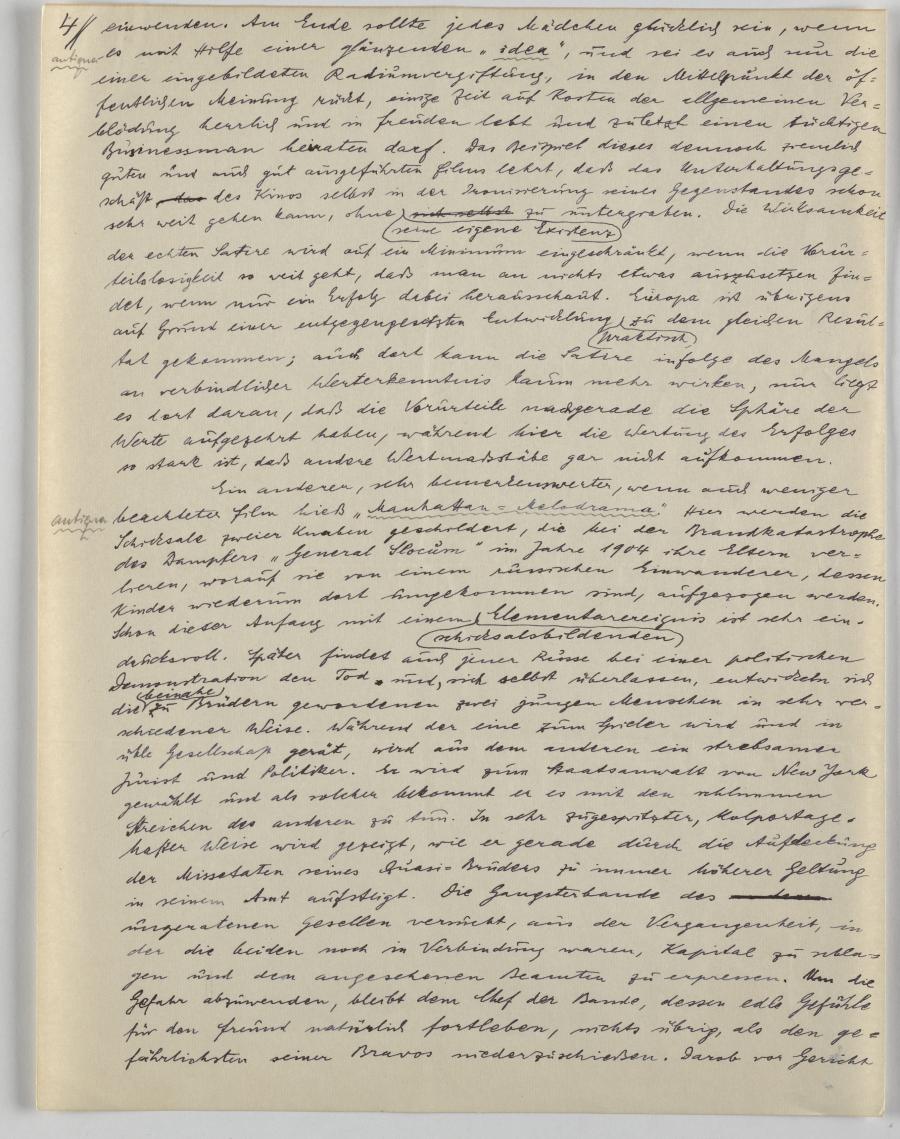 4// einwenden. Am Ende sollte jedes Mädchen glücklich sein, wenn
antiqua es mit Hilfe einer glänzenden „idea“, und sei es auch nur die
einer eingebildeten Radiumvergiftung, in den Mittelpunkt der öf=
fentlichen Meinung rückt, einige Zeit auf Kosten der allgemeinen Ver=
blödung herrlich und in Freuden lebt und zuletzt einen tüchtigen
Businessman heiraten darf. Das Beispiel dieses dennoch ziemlich
guten und auch gut ausgeführten Films lehrt, daß das Unterhaltungsge=
schäft das des Kinos selbst in der Ironisierung seines Gegenstandes schon
sehr weit gehen kann, ohne sich selbst zu untergraben. Die Wirksamkeit
seine eigene Existenz
der echten Satire wird auf ein Minimum eingeschränkt, wenn die Vorur=
teilslosigkeit so weit geht, daß man an nichts etwas auszusetzen fin=
det, wenn nur ein Erfolg dabei herausschaut. Europa ist übrigens
auf Grund einer entgegengesetzten Entwicklung zu dem gleichen Resul=
praktisch
tat gekommen; auch dort kann die Satire infolge des Mangels
an verbindlicher Werterkenntnis kaum mehr wirken, nur liegt
es dort daran, daß die Vorurteile nachgerade die Sphäre der
Werte aufgezehrt haben, während hier die Wertung des Erfolges
so stark ist, daß andere Wertmaßstäbe gar nicht aufkommen.
Ein anderer, sehr bemerkenswerter, wenn auch weniger
antiqua beachteter Film hieß „Manhattan=Melodrama“. Hier werden die
Schicksale zweier Knaben geschildert, die bei der Brandkatastrophe
des Dampfers „General Slocum“ im Jahre 1904 ihre Eltern ver=
lieren, worauf sie von einem russischen Einwanderer, dessen
Kinder wiederum dort umgekommen sind, aufgezogen werden.
Schon dieser Anfang mit einem Elementarereignis ist sehr ein=
schicksalsbildenden
drucksvoll. Später findet auch jener Russe bei einer politischen
Demonstration den Tod und, sich selbst überlassen, entwickeln sich
beinahe
die zu Brüdern gewordenen zwei jungen Menschen in sehr ver=
schiedener Weise. Während der eine zum Spieler wird und in
üble Gesellschaft gerät, wird aus dem anderen ein strebsamer
Jurist und Politiker. Er wird zum Staatsanwalt von New York
gewählt und als solcher bekommt er es mit den schlimmen
Streichen des anderen zu tun. In sehr zugespitzter, kolportage=
hafter Weise wird gezeigt, wie er gerade durch die Aufdeckung
der Missetaten seines Quasi-Bruders zu immer höherer Geltung
in seinem Amt aufsteigt. Die Gangsterbande des
ungeratenen Gesellen versucht, aus der Vergangenheit, in
der die beiden noch in Verbindung waren, Kapital zu schla=
gen und den angesehenen Beamten zu erpressen. Um die
Gefahr abzuwenden, bleibt dem Chef der Bande, dessen edle Gefühle
für den Freund natürlich fortleben, nichts übrig, als den ge=
fährlichsten seiner Bravos niederzuschießen. Darob vor Gericht